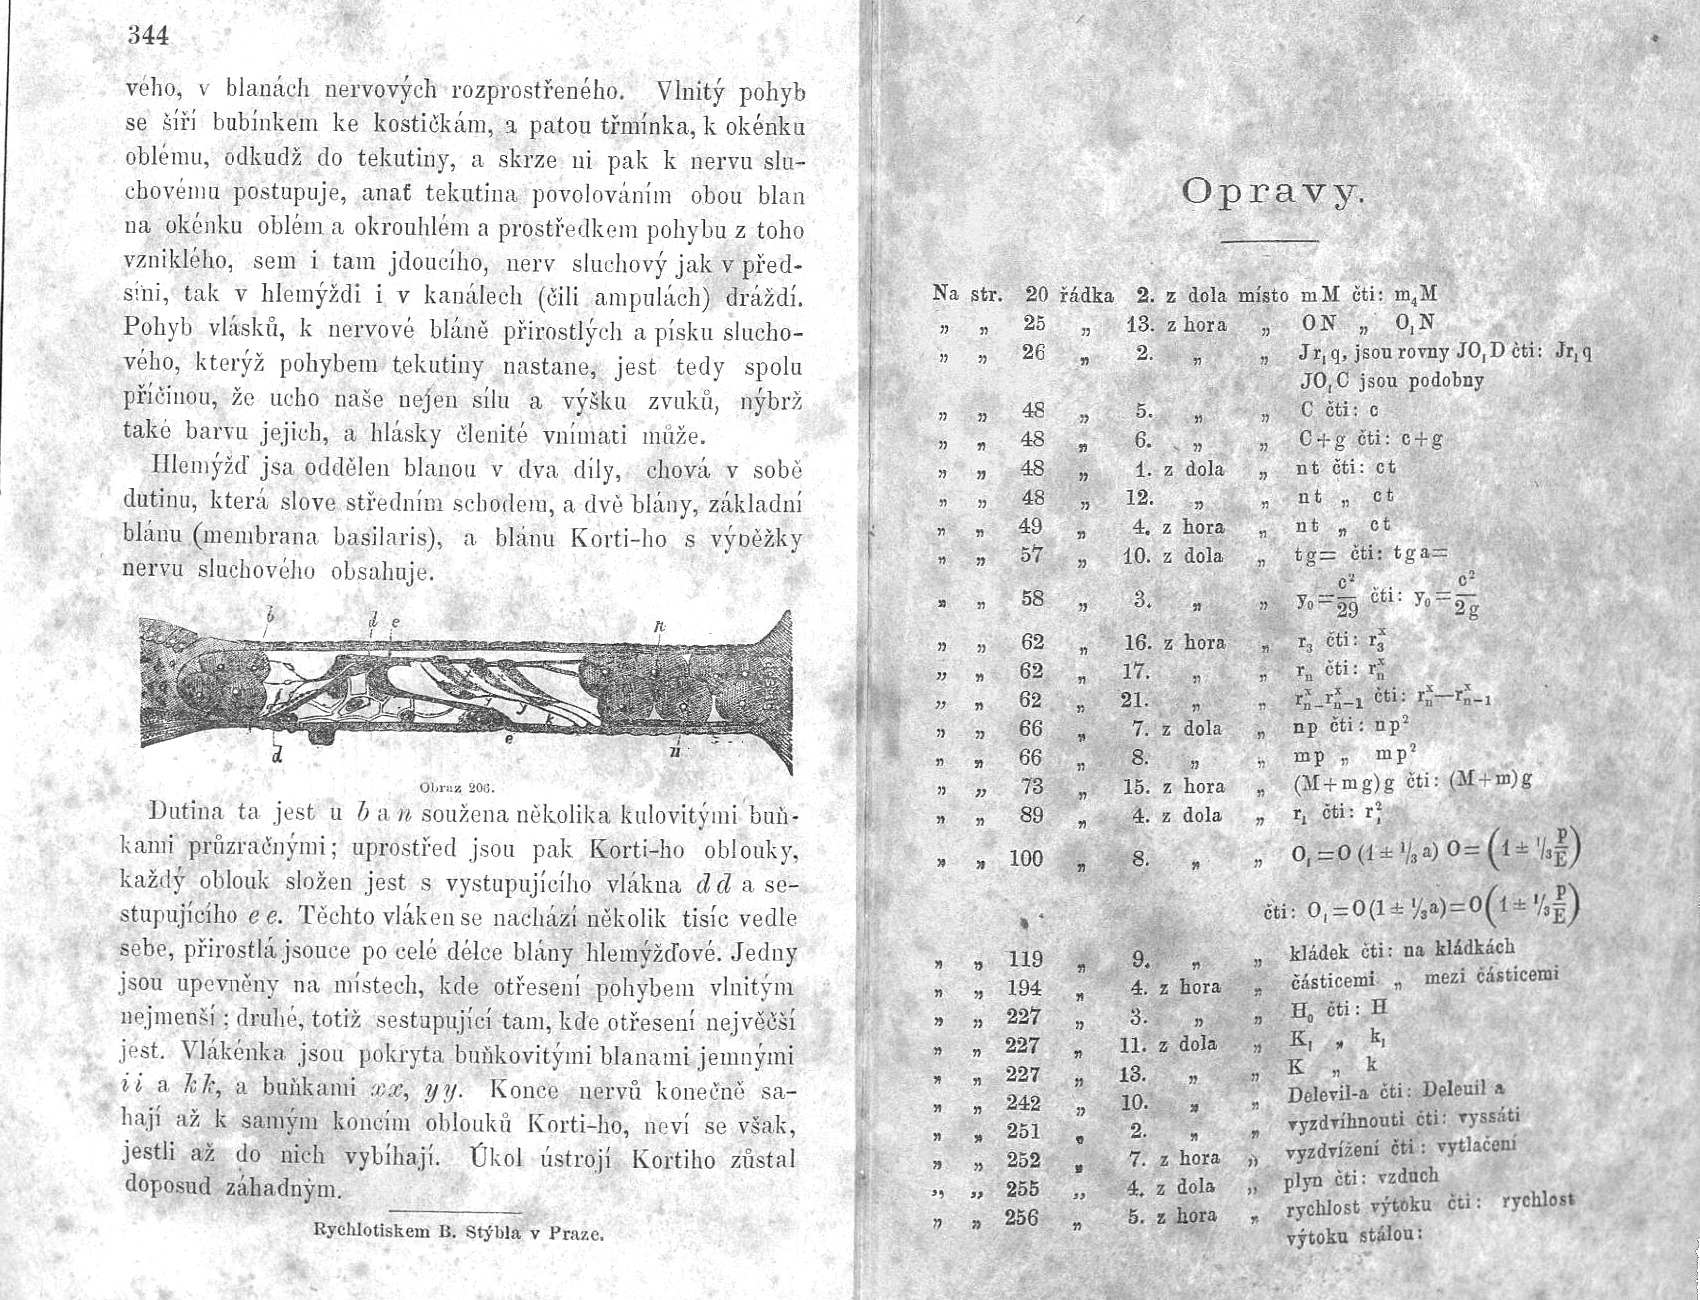 344
vého, v blanách nervových rozprostřeného. Vlnitý pohyb
se šíří bubínkem ke kostičkám, a patou třmínka, k okénku
oblému, odkudž do tekutiny, a skrze ni pak k nervu slu-
chovému postupuje, anať tekutina povolováním obou blan
na okénku oblém a okrouhlém a prostředkem pohybu z toho
vzniklého, sem i tam jdoucího, nerv sluchový jak v před-
síni, tak v hlemýždi i v kanálech (čili ampulách) dráždí.
Pohyb vlásků, k nervové bláně přirostlých a písku slucho-
vého, kterýž pohybem tekutiny nastane, jest tedy spolu
příčinou, že ucho naše nejen sílu a výšku zvuků, nýbrž
také barvu jejich, a hlásky členité vnímati může.
Hlemýžď jsa oddělen blanou v dva díly, chová v sobě
dutinu, která slove středním schodem, a dvě blány, základní
blánu (membrana basilaris), a blánu Korti-ho s výběžky
nervu sluchového obsahuje.
b d e n
x x y y k
d e n
Obraz 206.
Dutina ta jest u b a n soužena několika kulovitými buň-
kami průzračnými; uprostřed jsou pak Korti-ho oblouky,
každý oblouk složen jest s vystupujícího vlákna d d a se-
stupujícího e e. Těchto vláken se nachází několik tisíc vedle
sebe, přirostlá jsouce po celé délce blány hlemýžďové. Jedny
jsou upevněny na místech, kde otřesení pohybem vlnitým
nejmenší; druhé, totiž sestupující tam, kde otřesení největší
jest. Vlákénka jsou pokryta buňkovitými blanami jemnými
i i a k k, a buňkami x x, y y. Konce nervů konečně sa-
hají až k samým koncím oblouků Korti-ho, neví se však,
jestli až do nich vybíhají. Úkol ústrojí Kortiho zůstal
doposud záhadným.
Rychlotiskem B. Stýbla v Praze.
Opravy.
Na str. 20 řádka 2. z dola místo mM čti: m₄M
„ „ 25 „ 13. z hora „ ON „ O₁N
„ „ 26 „ 2. „ „ Jr₁q, jsou rovny JO₁D čti: Jr₁q
JO₁C jsou podobny
„ „ 48 „ 5. „ „ C čti: c
„ „ 48 „ 6. „ „ C+g čti: c+g
„ „ 48 „ 1. z dola „ nt čti: ct
„ „ 48 „ 12. „ „ nt „ ct
„ „ 49 „ 4. z hora „ nt „ ct
„ „ 57 „ 10. z dola „ tg= čti: tga=
„ „ 58 „ 3. „ „ y₀=c²/29 čti: y₀=c²/2g
„ „ 62 „ 16. z hora „ r₃ čti: r₃ˣ
„ „ 62 „ 17. „ „ rₙ čti: rₙˣ
„ „ 62 „ 21. „ „ rₙˣ₋rₙ₋₁ˣ čti: rₙˣ—rₙ₋₁ˣ
„ „ 66 „ 7. z dola „ np čti: np²
„ „ 66 „ 8. „ „ mp „ mp²
„ „ 73 „ 15. z hora „ (M+mg)g čti: (M+m)g
„ „ 89 „ 4. z dola „ r₁ čti: r₁²
„ „ 100 „ 8. „ „ O₁=O (1 ± ⅓ a) O= (1 ± ⅓ P/E)
čti: O₁=O(1 ± ⅓a)=O(1 ± ⅓ P/E)
„ „ 119 „ 9. „ „ kládek čti: na kládkách
„ „ 194 „ 4. z hora „ částicemi „ mezi částicemi
„ „ 227 „ 3. „ „ H₀ čti: H
„ „ 227 „ 11. z dola „ K₁ „ k₁
„ „ 227 „ 13. „ „ K „ k
„ „ 242 „ 10. „ „ Delevil-a čti: Deleuil a
„ „ 251 „ 2. „ „ vyzdvihnouti čti: vyssáti
„ „ 252 „ 7. z hora „ vyzdvížení čti: vytlačení
„ „ 255 „ 4. z dola „ plyn čti: vzduch
„ „ 256 „ 5. z hora „ rychlost výtoku čti: rychlost
výtoku stálou: